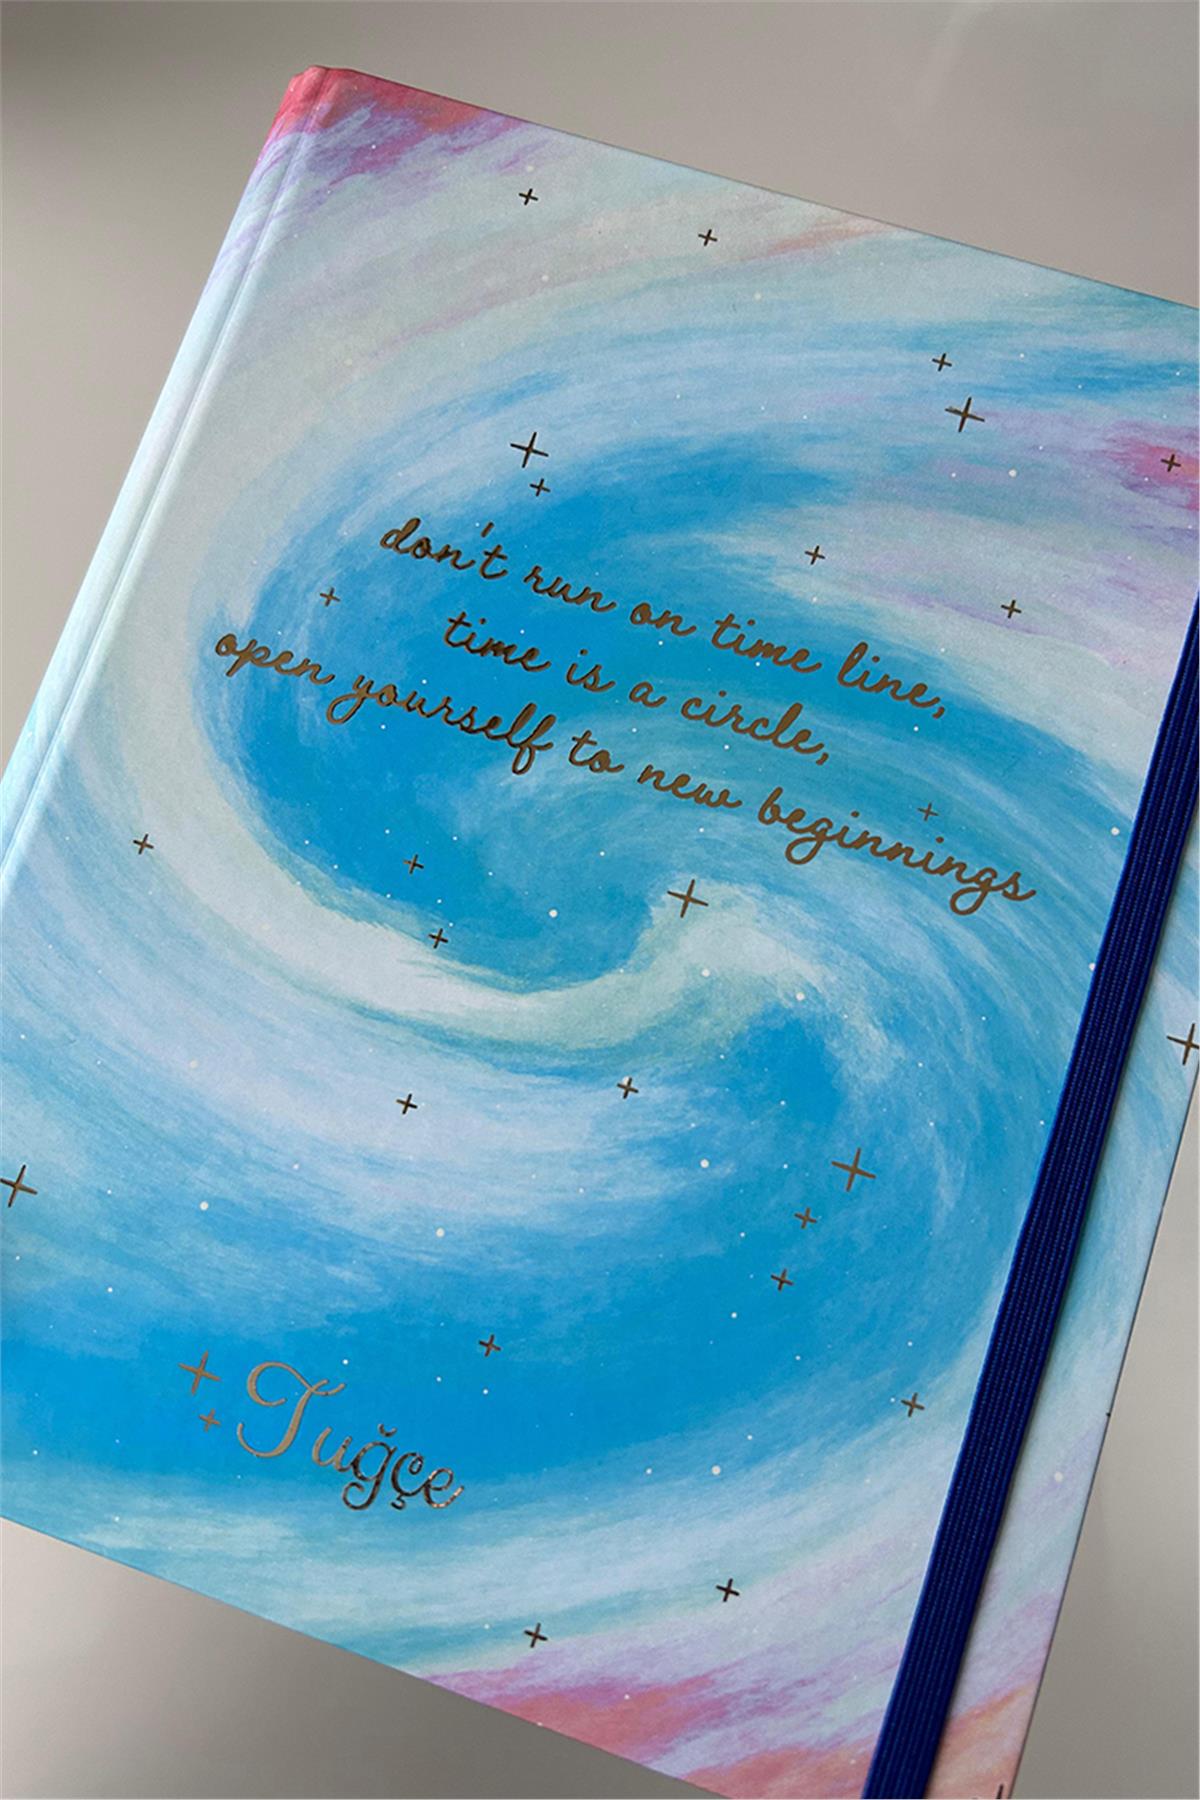 don't run on time line,
time is a circle,
open yourself to new beginnings
Tuğçe